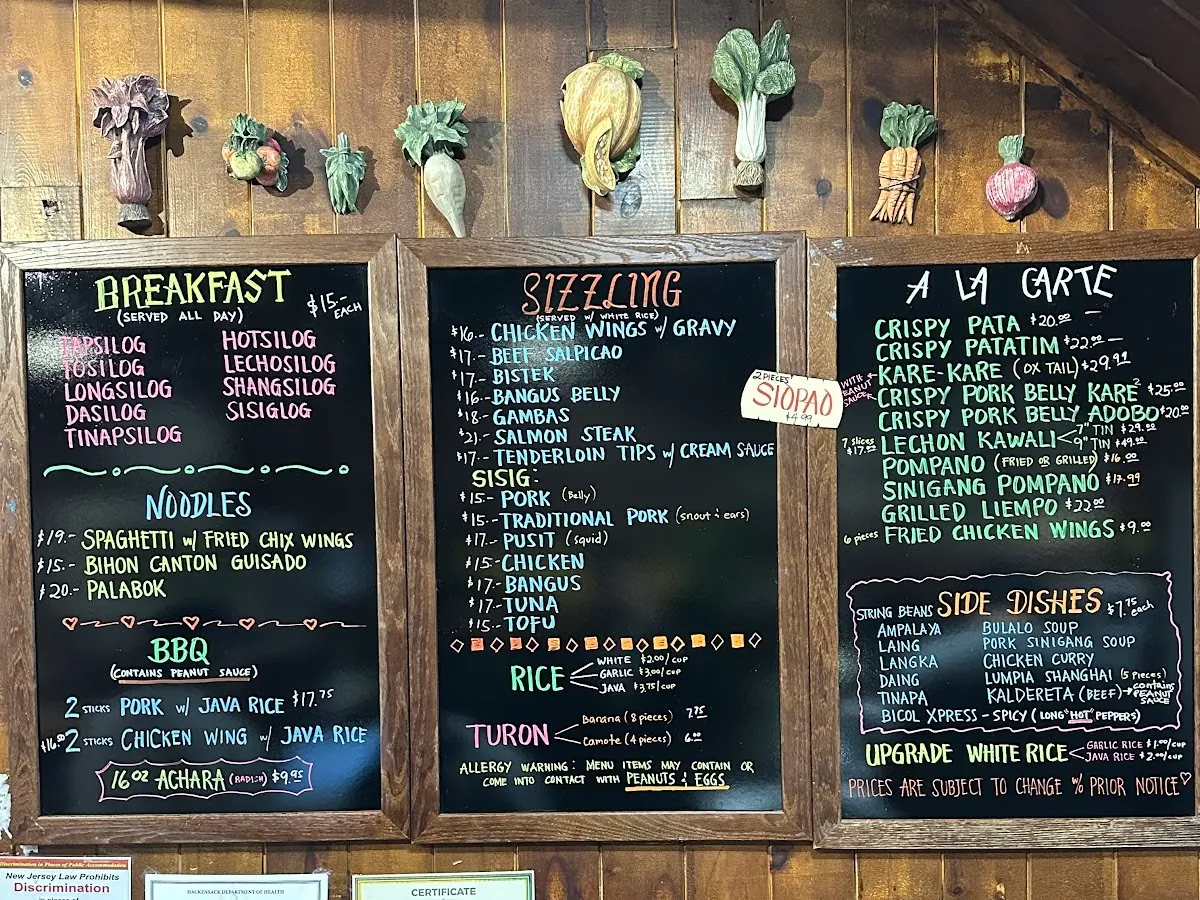 BREAKFAST
(SERVED ALL DAY)
$15.- EACH
TAPSILOG
TOSILOG
LONGSILOG
DASILOG
TINAPSILOG
HOTSILOG
LECHOSILOG
SHANGSILOG
SISIGLOG
NOODLES
$19.- SPAGHETTI w/ FRIED CHIX WINGS
$15.- BIHON CANTON GUISADO
$20.- PALABOK
BBQ
(CONTAINS PEANUT SAUCE)
2 STICKS PORK w/ JAVA RICE $17.75
$16.50 2 STICKS CHICKEN WING w/ JAVA RICE
16 OZ ACHARA (RADISH) $9.95
SIZZLING
(SERVED w/ WHITE RICE)
$16.- CHICKEN WINGS w/ GRAVY
$17.- BEEF SALPICAO
$17.- BISTEK
$16.- BANGUS BELLY
$18.- GAMBAS
$21.- SALMON STEAK
$17.- TENDERLOIN TIPS w/ CREAM SAUCE
SISIG:
$15.- PORK (Belly)
$15.- TRADITIONAL PORK (snout & ears)
$17.- PUSIT (squid)
$15- CHICKEN
$17- BANGUS
$17- TUNA
$15- TOFU
RICE
WHITE $2.00/CUP
GARLIC $3.00/CUP
JAVA $3.75/CUP
TURON
Banana (8 pieces) 7.75
Camote (4 pieces) 6.00
ALLERGY WARNING: MENU ITEMS MAY CONTAIN OR
COME INTO CONTACT WITH PEANUTS & EGGS
2 PIECES
SIOPAO
$4.99
A LA CARTE
CRISPY PATA $20.00
CRISPY PATATIM $22.00
KARE-KARE (OX TAIL) $29.99
WITH PEANUT SAUCE
CRISPY PORK BELLY KARE² $25.00
CRISPY PORK BELLY ADOBO $20.00
7 slices $17.00 LECHON KAWALI
7" TIN $29.00
9" TIN $49.00
POMPANO (FRIED OR GRILLED) $16.00
SINIGANG POMPANO $17.99
GRILLED LIEMPO $22.00
6 pieces FRIED CHICKEN WINGS $9.00
SIDE DISHES $7.75 each
STRING BEANS
AMPALAYA
LAING
LANGKA
DAING
TINAPA
BULALO SOUP
PORK SINIGANG SOUP
CHICKEN CURRY
LUMPIA SHANGHAI (5 Pieces)
KALDERETA (BEEF) → contains PEANUT SAUCE
BICOL XPRESS - SPICY (LONG "HOT" PEPPERS)
UPGRADE WHITE RICE
GARLIC RICE $1.00/CUP
JAVA RICE $2.00/CUP
PRICES ARE SUBJECT TO CHANGE % PRIOR NOTICE ♡
Discrimination in Places of Public Accommodation
New Jersey Law Prohibits
Discrimination
in places of
HACKENSACK DEPARTMENT OF HEALTH
CERTIFICATE